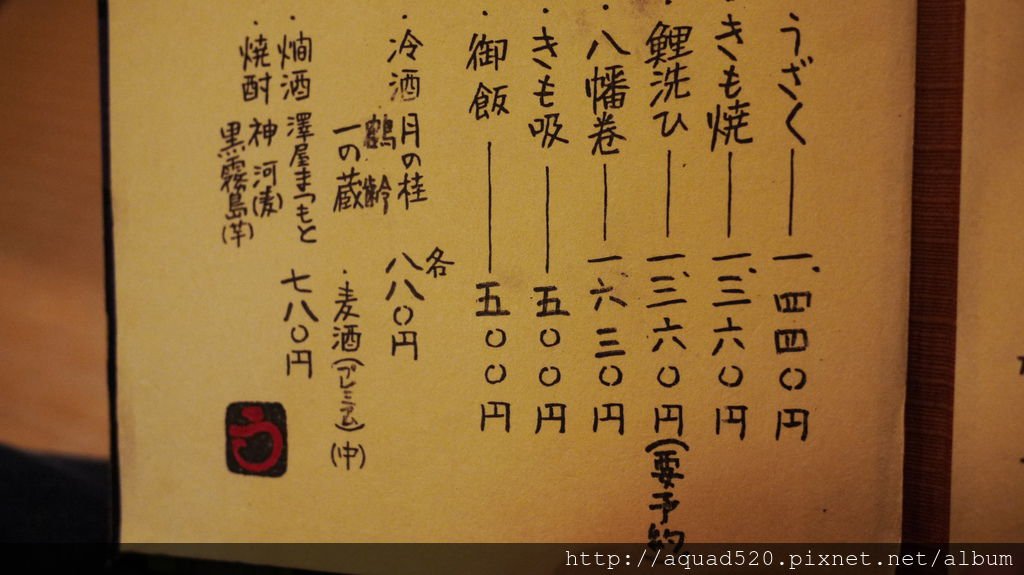 うざく 一、四四〇円
・きも焼 一、三六〇円
鯉洗ひ 一、三六〇円(要予約
・八幡巻 一六三〇円
・きも吸 五〇〇円
・御飯 五〇〇円
・冷酒 月の桂 各八八〇円
鶴齢
一の蔵
・麦酒(プレミアム)(中)
・燗酒 澤屋まつもと 七八〇円
・焼酎 神河(麦)
黒霧島(芋)
う
http://aquad520.pixnet.net/album